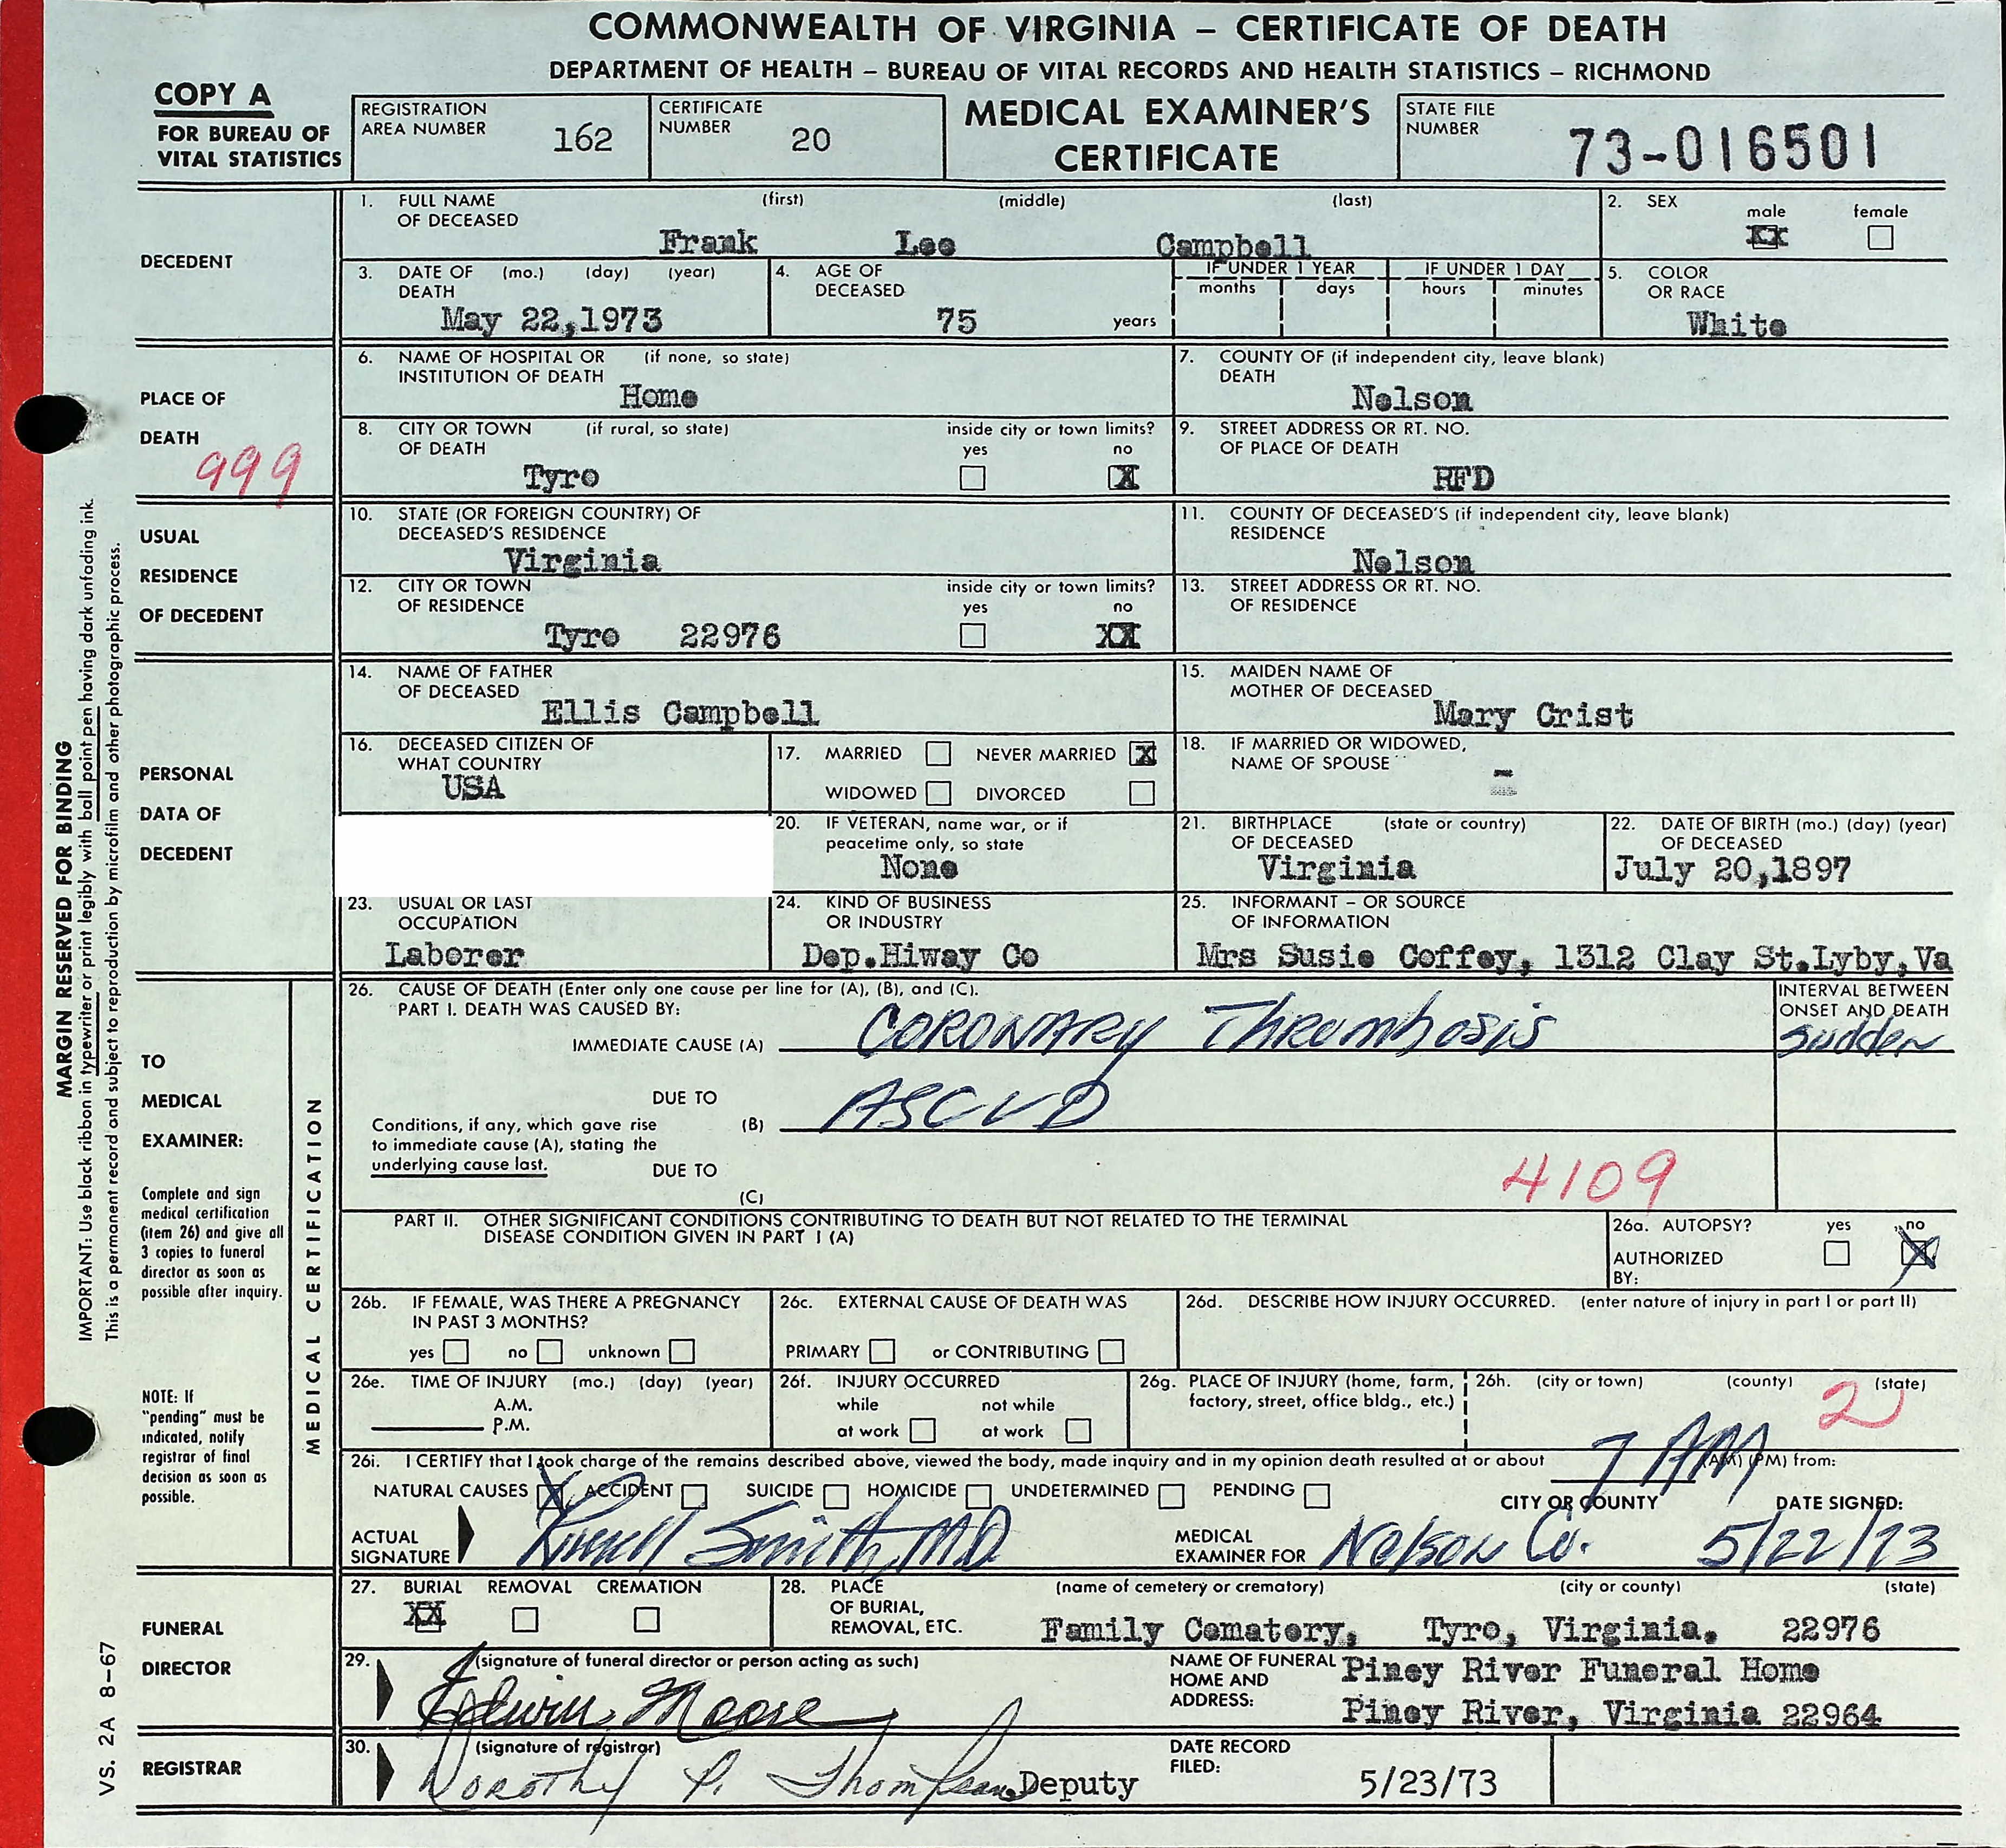 COMMONWEALTH OF VIRGINIA – CERTIFICATE OF DEATH
DEPARTMENT OF HEALTH – BUREAU OF VITAL RECORDS AND HEALTH STATISTICS – RICHMOND
COPY A
FOR BUREAU OF
VITAL STATISTICS
REGISTRATION
AREA NUMBER 162
CERTIFICATE
NUMBER 20
MEDICAL EXAMINER'S
CERTIFICATE
STATE FILE
NUMBER 73-016501
DECEDENT
1. FULL NAME (first) (middle) (last)
OF DECEASED
Frank Lee Campbell
2. SEX
male female
XX
3. DATE OF (mo.) (day) (year)
DEATH
May 22,1973
4. AGE OF
DECEASED
75 years
IF UNDER 1 YEAR
months days
IF UNDER 1 DAY
hours minutes
5. COLOR
OR RACE
White
PLACE OF
DEATH
999
6. NAME OF HOSPITAL OR (if none, so state)
INSTITUTION OF DEATH
Home
7. COUNTY OF (if independent city, leave blank)
DEATH
Nelson
8. CITY OR TOWN (if rural, so state) inside city or town limits?
OF DEATH yes no
Tyro X
9. STREET ADDRESS OR RT. NO.
OF PLACE OF DEATH
RFD
USUAL
RESIDENCE
OF DECEDENT
10. STATE (OR FOREIGN COUNTRY) OF
DECEASED'S RESIDENCE
Virginia
11. COUNTY OF DECEASED'S (if independent city, leave blank)
RESIDENCE
Nelson
12. CITY OR TOWN inside city or town limits?
OF RESIDENCE yes no
Tyro 22976 XX
13. STREET ADDRESS OR RT. NO.
OF RESIDENCE
PERSONAL
DATA OF
DECEDENT
14. NAME OF FATHER
OF DECEASED
Ellis Campbell
15. MAIDEN NAME OF
MOTHER OF DECEASED
Mary Crist
16. DECEASED CITIZEN OF
WHAT COUNTRY
USA
17. MARRIED NEVER MARRIED X
WIDOWED DIVORCED
18. IF MARRIED OR WIDOWED,
NAME OF SPOUSE
-
20. IF VETERAN, name war, or if
peacetime only, so state
None
21. BIRTHPLACE (state or country)
OF DECEASED
Virginia
22. DATE OF BIRTH (mo.) (day) (year)
OF DECEASED
July 20,1897
23. USUAL OR LAST
OCCUPATION
Laborer
24. KIND OF BUSINESS
OR INDUSTRY
Dep.Hiway Co
25. INFORMANT – OR SOURCE
OF INFORMATION
Mrs Susie Coffey, 1312 Clay St.Lyby,Va
TO
MEDICAL
EXAMINER:
Complete and sign
medical certification
(item 26) and give all
3 copies to funeral
director as soon as
possible after inquiry.
NOTE: If
"pending" must be
indicated, notify
registrar of final
decision as soon as
possible.
MEDICAL CERTIFICATION
26. CAUSE OF DEATH (Enter only one cause per line for (A), (B), and (C).
PART I. DEATH WAS CAUSED BY:
IMMEDIATE CAUSE (A) CORONARY Thrombosis
INTERVAL BETWEEN
ONSET AND DEATH
Sudden
DUE TO
(B) ASCVD
Conditions, if any, which gave rise
to immediate cause (A), stating the
underlying cause last.
DUE TO
(C)
4109
PART II. OTHER SIGNIFICANT CONDITIONS CONTRIBUTING TO DEATH BUT NOT RELATED TO THE TERMINAL
DISEASE CONDITION GIVEN IN PART I (A)
26a. AUTOPSY? yes no
AUTHORIZED
BY: X
26b. IF FEMALE, WAS THERE A PREGNANCY
IN PAST 3 MONTHS?
yes no unknown
26c. EXTERNAL CAUSE OF DEATH WAS
PRIMARY or CONTRIBUTING
26d. DESCRIBE HOW INJURY OCCURRED. (enter nature of injury in part I or part II)
26e. TIME OF INJURY (mo.) (day) (year)
A.M.
P.M.
26f. INJURY OCCURRED
while not while
at work at work
26g. PLACE OF INJURY (home, farm,
factory, street, office bldg., etc.)
26h. (city or town) (county) (state)
2
26i. I CERTIFY that I took charge of the remains described above, viewed the body, made inquiry and in my opinion death resulted at or about 7 AM (AM) (PM) from:
NATURAL CAUSES X ACCIDENT SUICIDE HOMICIDE UNDETERMINED PENDING
CITY OR COUNTY DATE SIGNED:
ACTUAL
SIGNATURE Smith, M.D.
MEDICAL
EXAMINER FOR Nelson Co. 5/22/73
FUNERAL
DIRECTOR
27. BURIAL REMOVAL CREMATION
XX
28. PLACE
OF BURIAL,
REMOVAL, ETC.
(name of cemetery or crematory) (city or county) (state)
Family Cematery, Tyro, Virginia, 22976
29. (signature of funeral director or person acting as such)
Edwin Moore
NAME OF FUNERAL
HOME AND
ADDRESS:
Piney River Funeral Home
Piney River, Virginia 22964
REGISTRAR
30. (signature of registrar)
Dorothy P. Thompson Deputy
DATE RECORD
FILED:
5/23/73
MARGIN RESERVED FOR BINDING
IMPORTANT: Use black ribbon in typewriter or print legibly with ball point pen having dark unfading ink.
This is a permanent record and subject to reproduction by microfilm and other photographic process.
VS. 2A 8–67